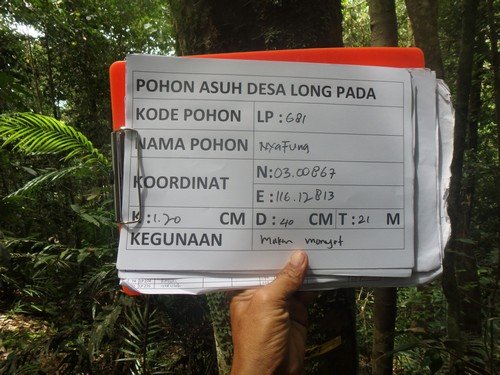 POHON ASUH DESA LONG PADA
KODE POHON LP : 681
NAMA POHON Nyafung
KOORDINAT N: 03.00867
E : 116.12813
K : 1.20 CM D : 40 CM T : 21 M
KEGUNAAN Makan monyet